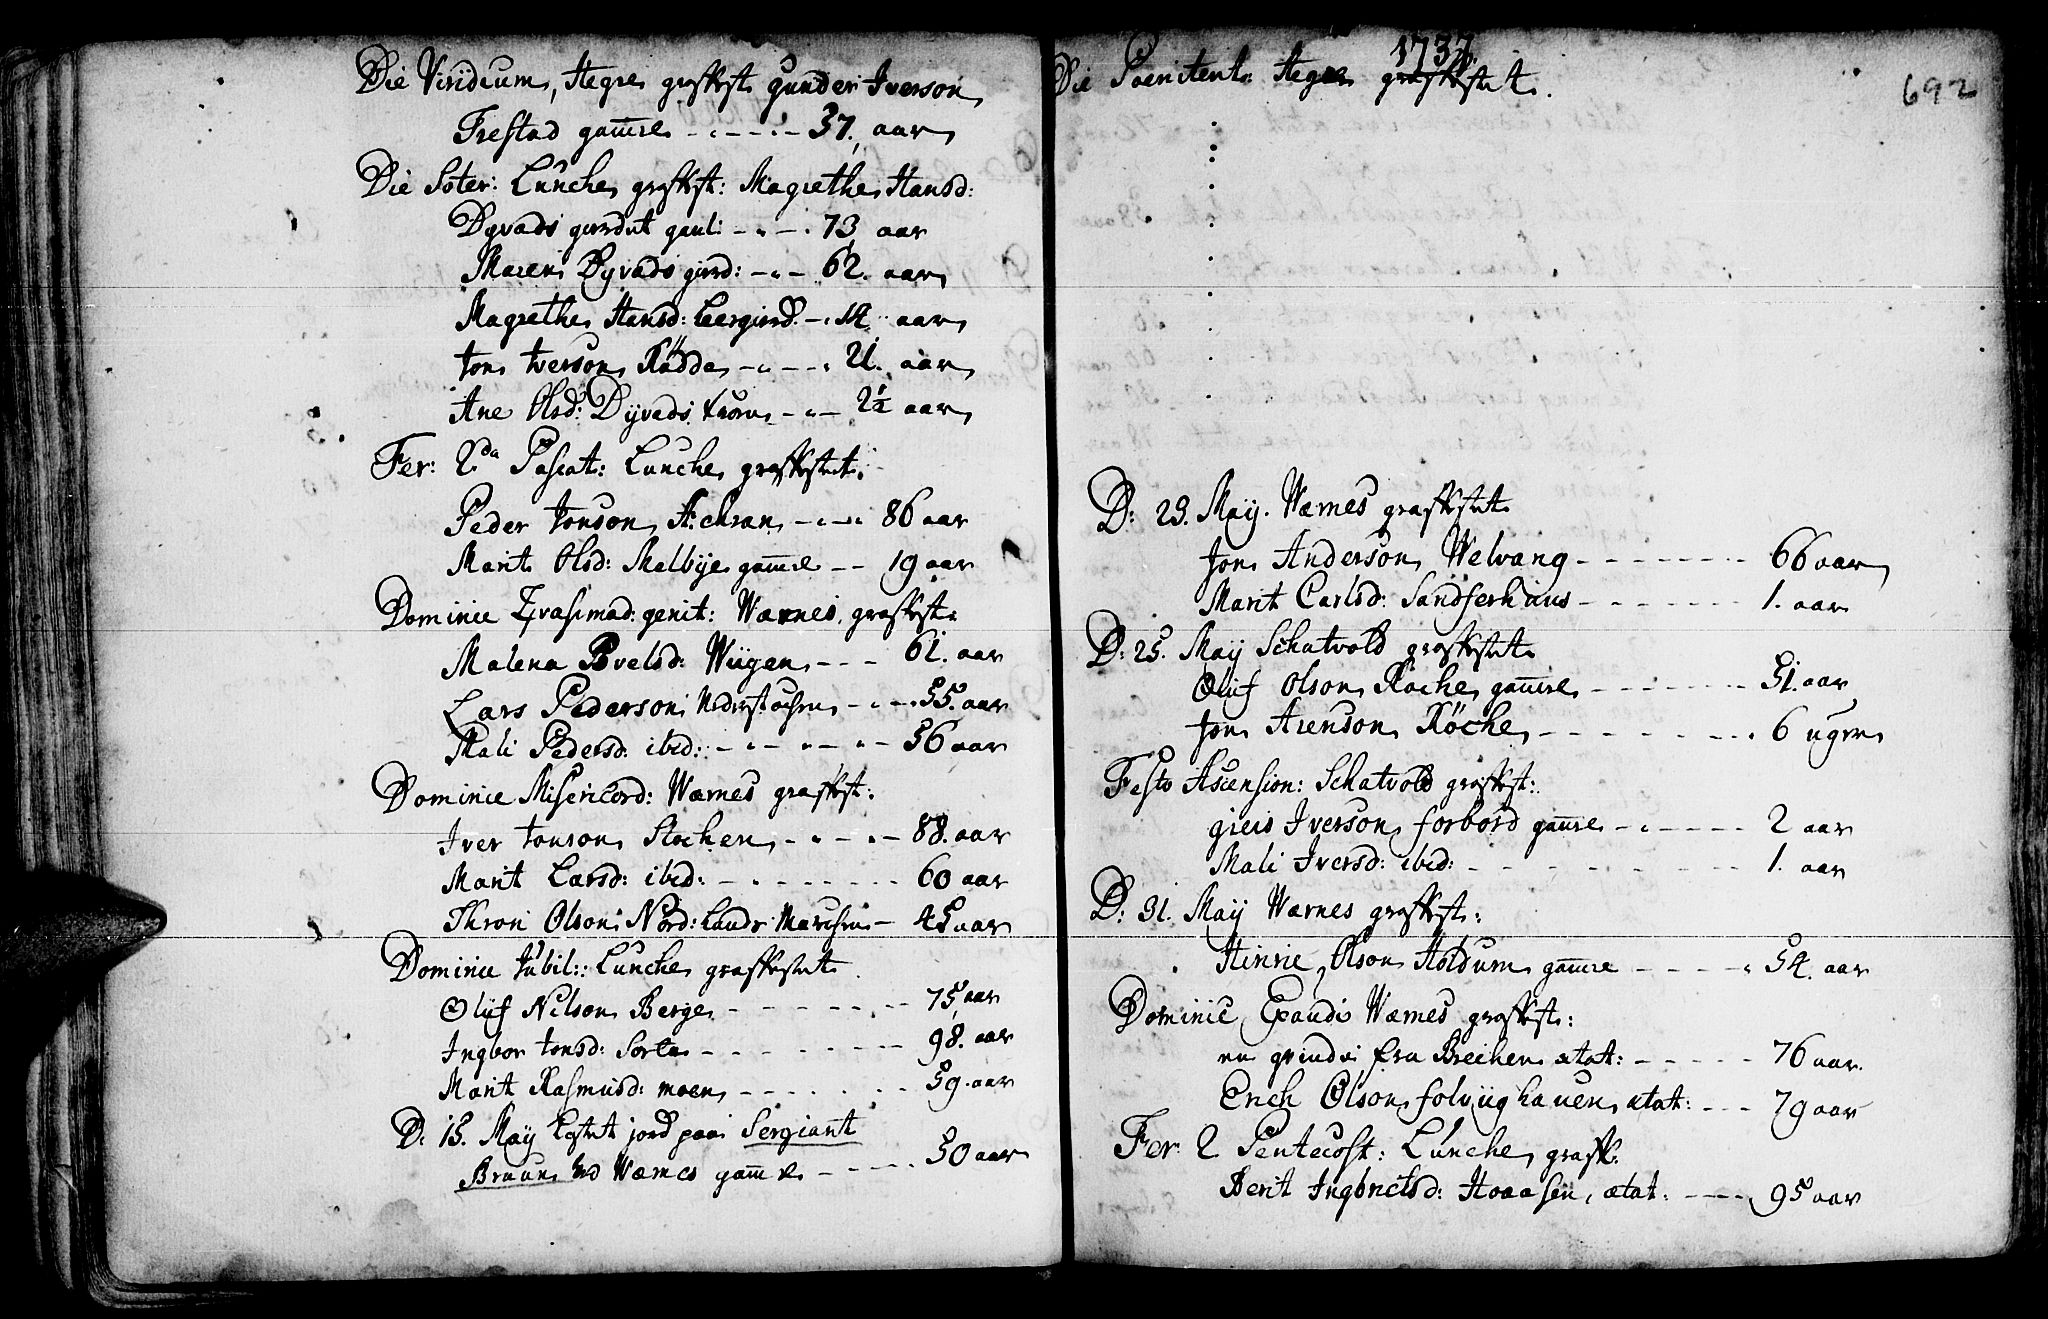 Die Viridium, Hegre graffest Gunder Iverson
Frestad gamle 37. aar
Die Soter: Lunche graffest: Magrethe Hansd:
Dyvads gaul: 73 aar
Maren Dyvads 62. aar
Magrethe Hansd: 14 aar
Jon Iverson Rädde 21. aar
Ane Olsd: Dyvads 2½ aar
Fer: 2da Pascat: Lunche graffestet
Peder Jonson 86 aar
Marit Olsd: Malbye gamle 19 aar
Dominic Qvasimod: genit: Wærnes graffest
Malena Povelsd: Wügen 61. aar
Lars Pederson 55. aar
Mali Pedersd: ibid: 56 aar
Dominic Misericord: Wærnes graffest:
Iver Jonson Stochen 88. aar
Marit Larsd: ibid: 60 aar
Thron Olson Nord: Lands 45 aar
Dominic Jubil: Lunche graffestet
Oluf Nilson Berge 75 aar
Ingbor Jonsd: Sorte 98. aar
Marit Rasmusd: moen 59. aar
D: 15. May jord paa Sergiant
Bruun Wærnes gamle 50 aar
1737
692
Die Poenitent: Hegre graffestet.
D: 23. May. Wærnes graffestet
Jon Anderson Welvang 66 aar
Marit Carlsd: Sandferhuus 1. aar
D: 25. May Schatvold graffestet
Oluf Olson Röche gamle 51. aar
Jon Arenson Röche 6 uger
Festo Ascension: Schatvold graffest:
Greis Iverson Forbord gamle 2 aar
Mali Iversd: ibid: 1. aar
D: 31. May Wærnes graffest:
Hinric Olson Holdum gamle 54. aar
Dominic Exaudi Wærnes graffest:
en qvinde fra Brechen ætat: 76 aar.
Erich Olson Solvüghauen ætat: 79 aar
Fer: 2 Pentecost: Lunche graff:
Berit Ingbrictsd: Hoaasen, ætat: 95 aar